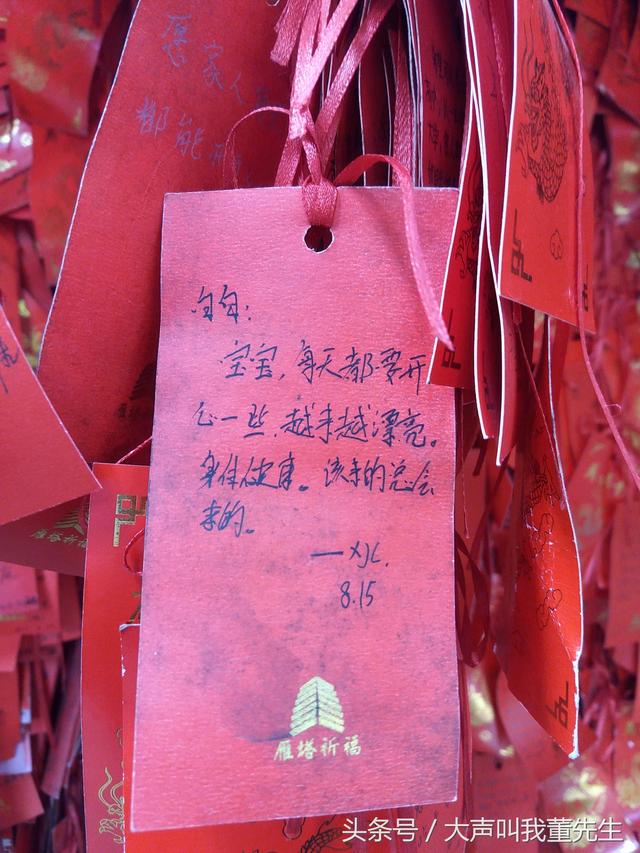 愿家人
都能
匀匀：
宝宝，每天都要开
心一些，越来越漂亮。
身体健康。该来的总会
来的。
—XJL.
8.15
雁塔祈福
雁塔祈福
头条号 / 大声叫我董先生